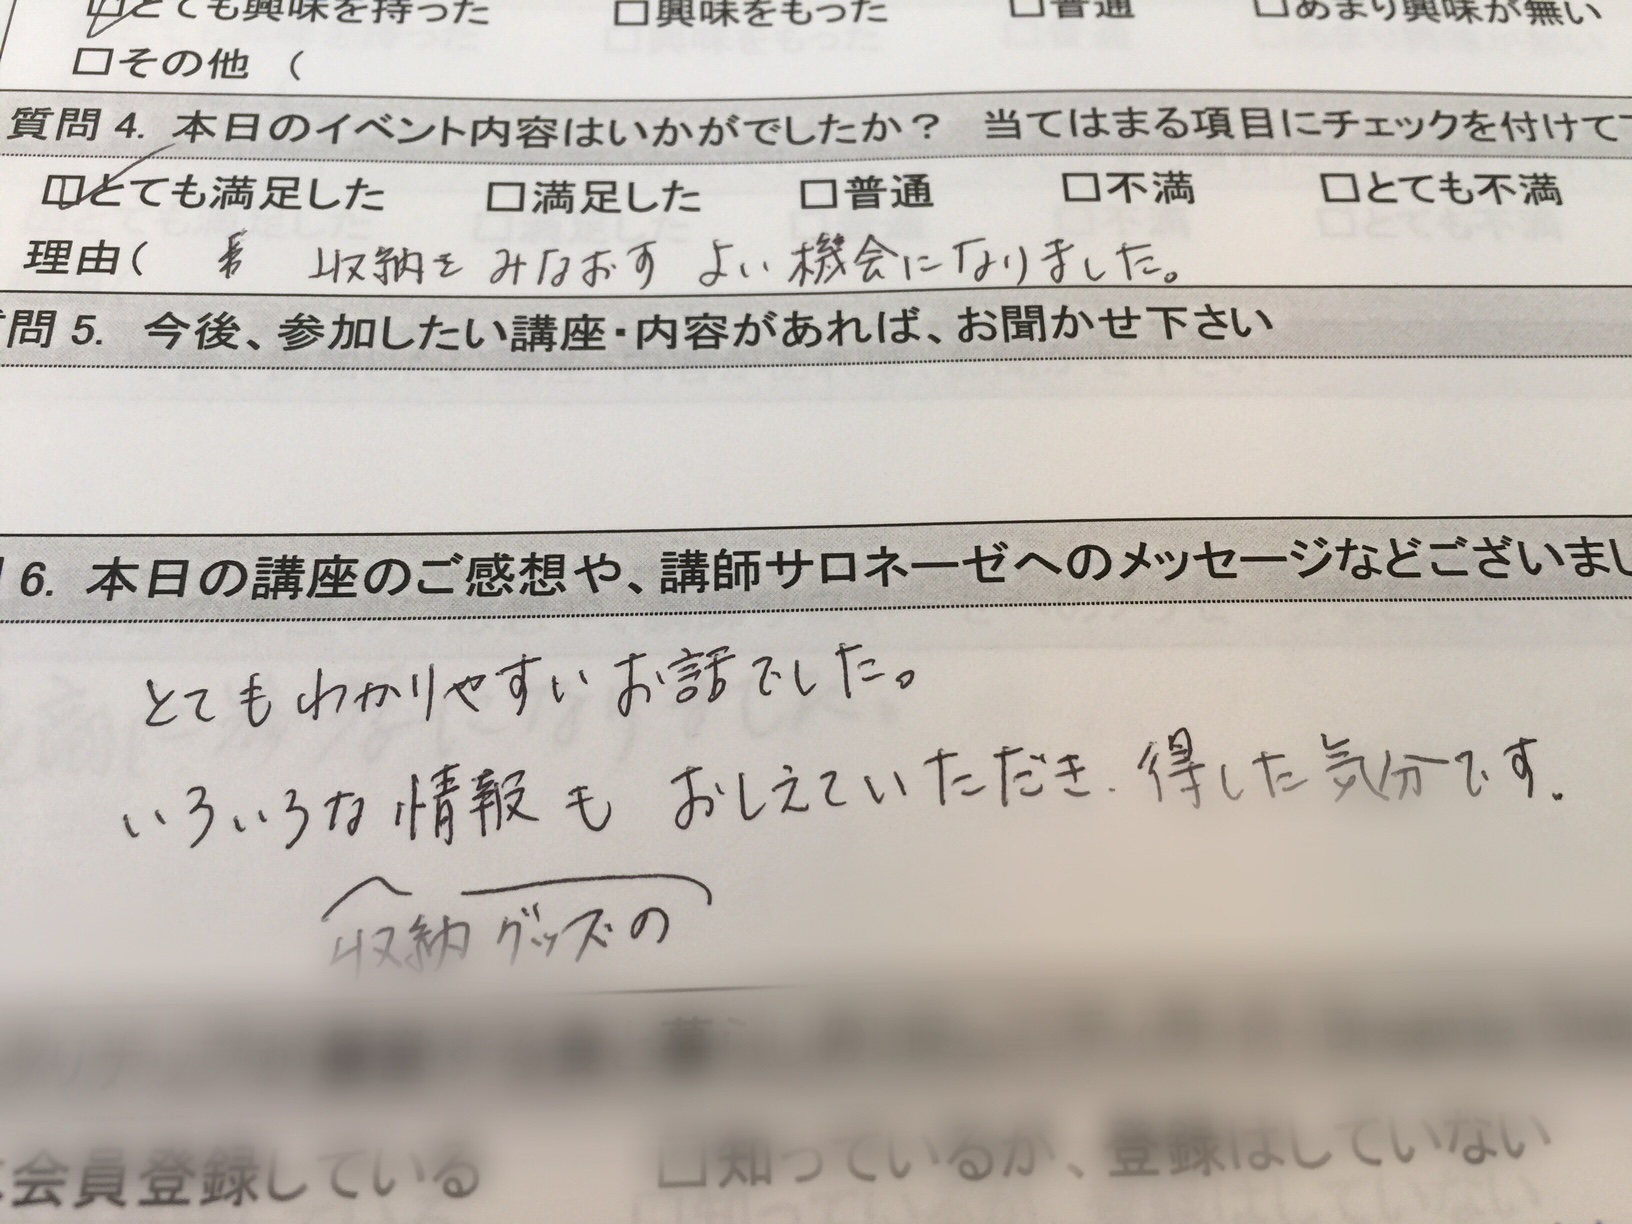 □とても興味を持った □興味をもった □普通 □あまり興味が無い
□その他 （
質問 4. 本日のイベント内容はいかがでしたか？ 当てはまる項目にチェックを付けて
□とても満足した □満足した □普通 □不満 □とても不満
理由（ 収納を みなおす よい 機会になりました。
問 5. 今後、参加したい講座・内容があれば、お聞かせ下さい
6. 本日の講座のご感想や、講師サロネーゼへのメッセージなどございまし
とてもわかりやすい お話でした。
いろいろな 情報 も おしえていただき. 得した気分です.
収納グッズの
会員登録している □知っているが、登録はしていない